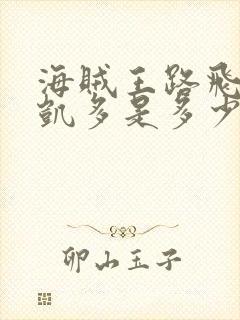 海贼王路飛
凯多是多少
卯山玉子